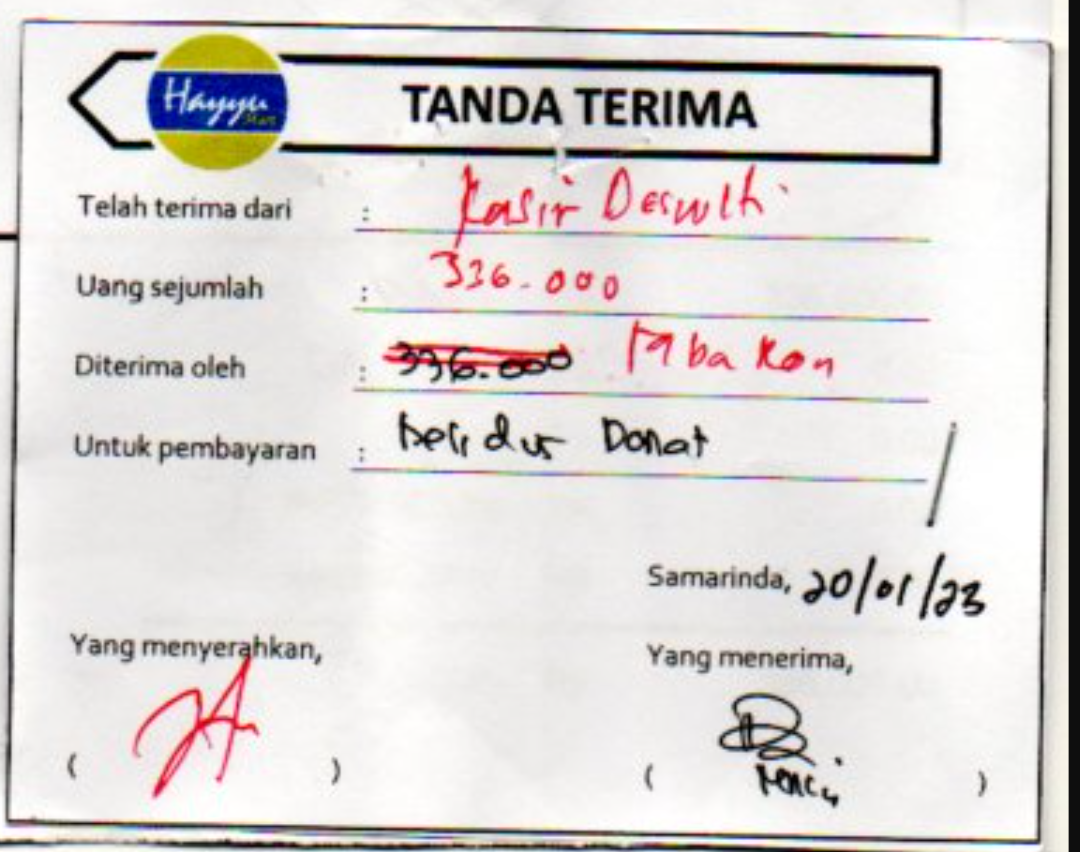 Hayyu
Mart
TANDA TERIMA
Telah terima dari : Kasir
Uang sejumlah : 336.000
Diterima oleh : 336.000
Untuk pembayaran : Donat
Samarinda, 20/01/23
Yang menyerahkan,
Yang menerima,
( )
( )